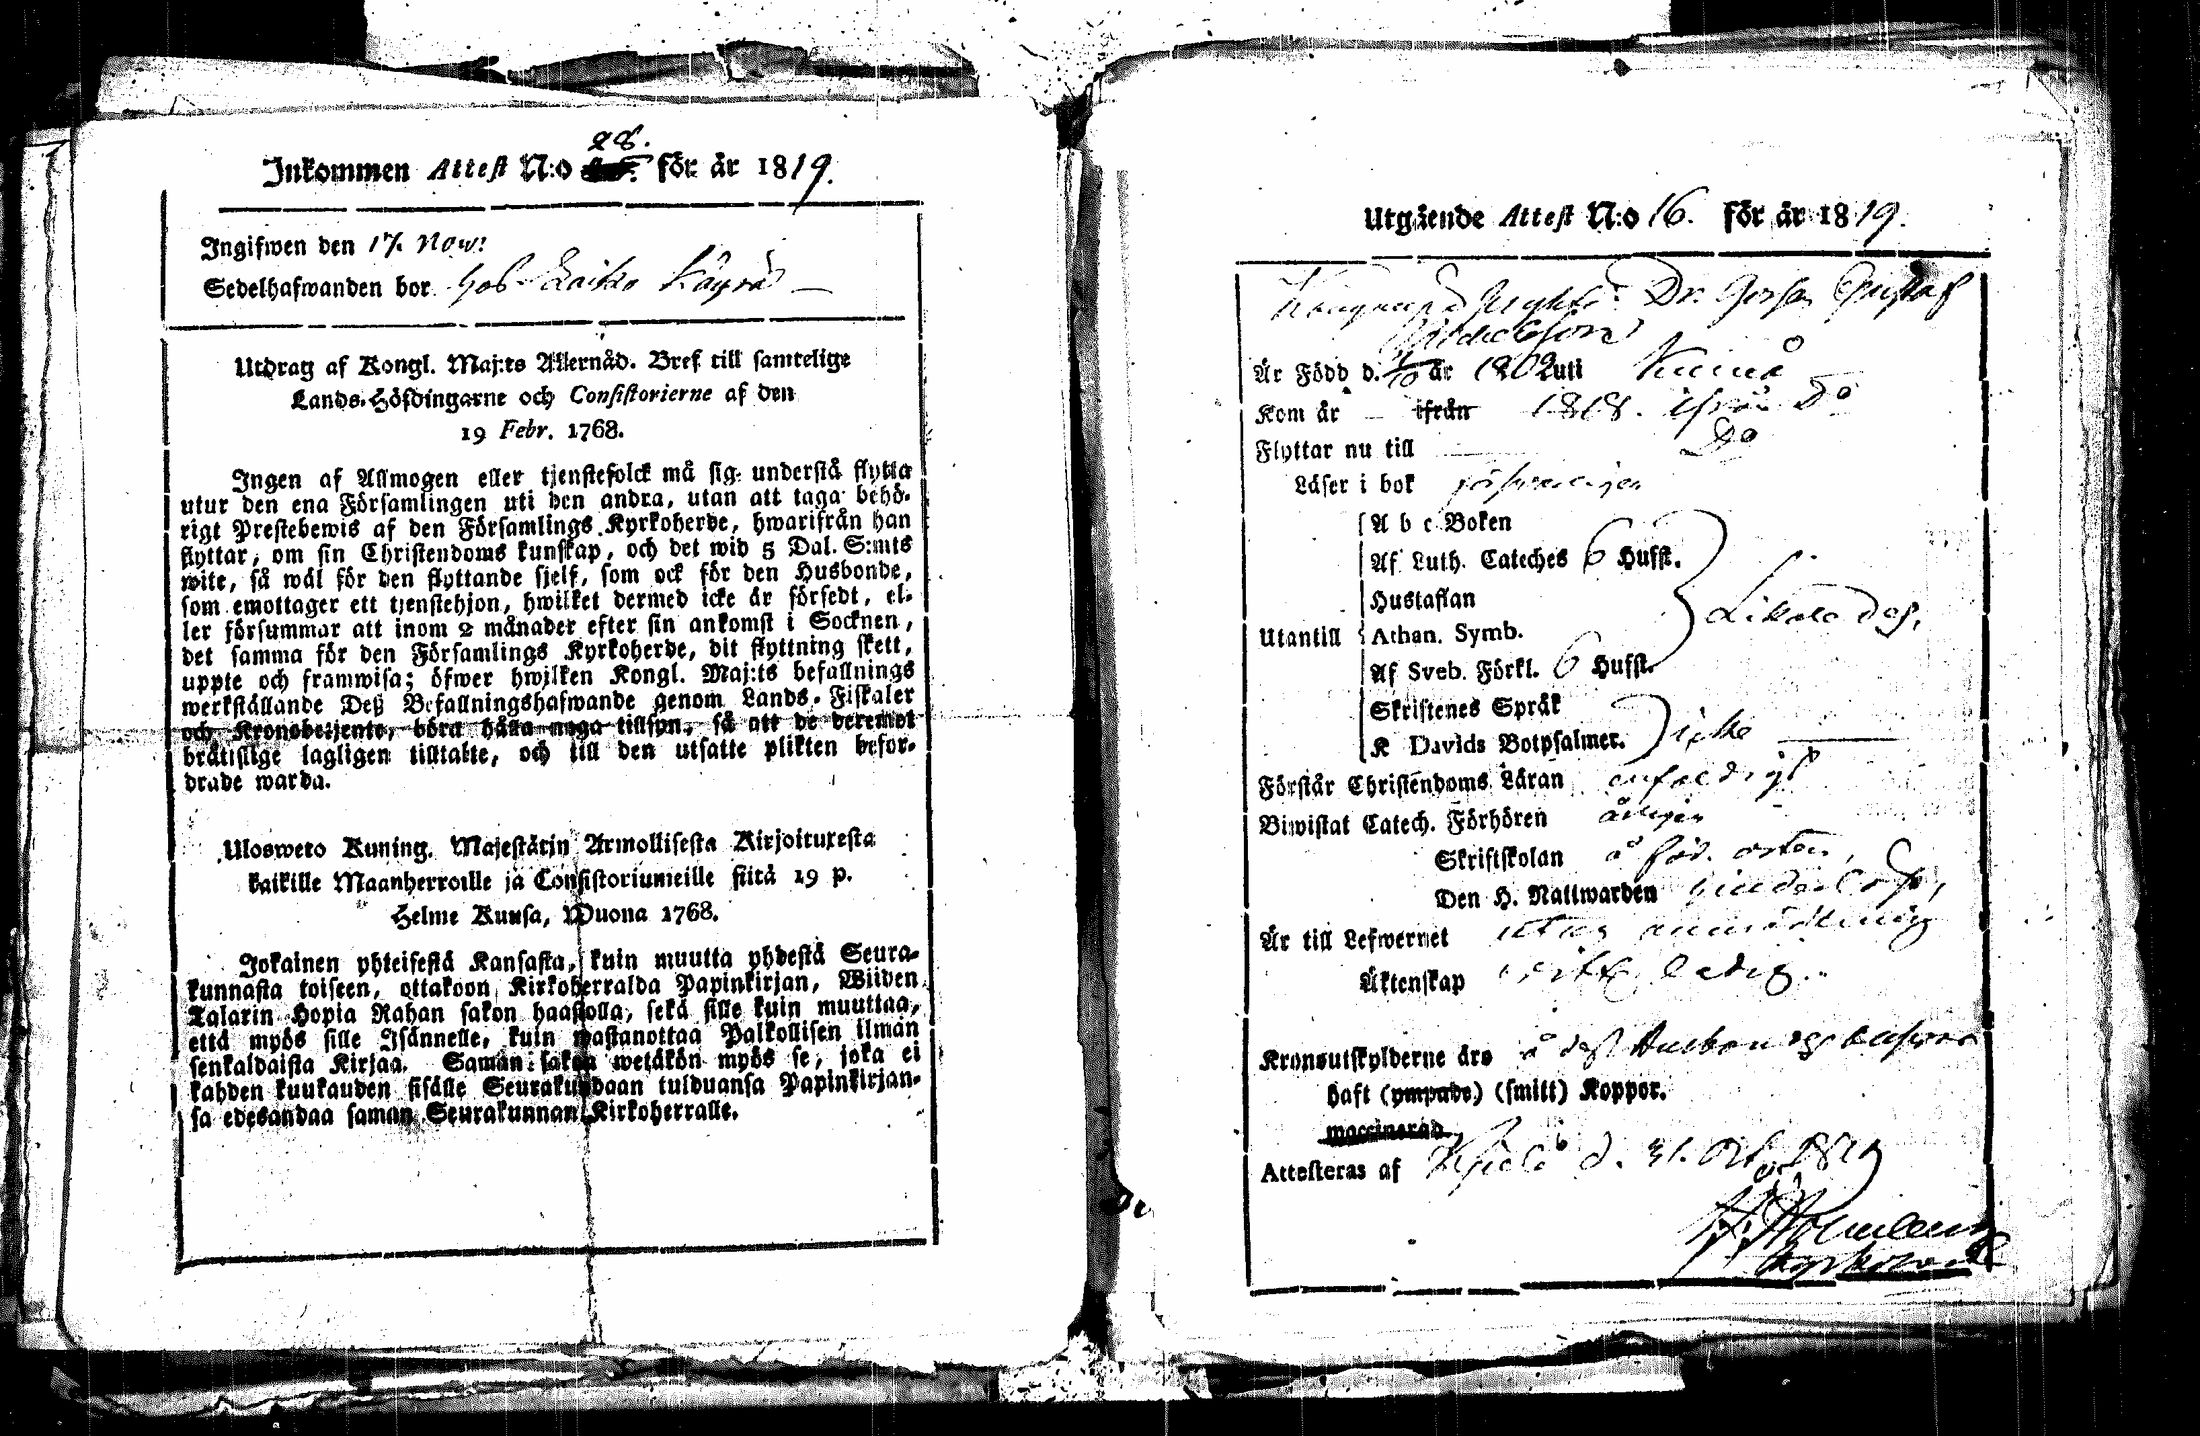 28.
Inkommen Attest N:o för år 1819.
Ingifwen den 17. Now:
Sedelhafwanden bor hos
Utdrag af Kongl. Maj:ts Allernåd. Bref till samtelige
Lands-Höfdingarne och Consistorierne af den
19 Febr. 1768.
Ingen af Allmogen eller tjenstefolck må sig understå flytta
utur den ena Församlingen uti den andra, utan att taga behö-
rigt Prestebewis af den Församlings Kyrkoherde, hwarifrån han
flyttar, om sin Christendoms kunskap, och det wid 5 Dal. S:mts
wite, så wäl för den flyttande sjelf, som ock för den Husbonde,
som emottager ett tjenstehjon, hwilket dermed icke är försedt, el-
ler försummar att inom 2 månader efter sin ankomst i Socknen,
det samma för den Församlings Kyrkoherde, dit flyttning skett,
uppte och framwisa; öfwer hwilken Kongl. Maj:ts befallnings
werkställande Deß Befallningshafwande genom Lands-Fiskaler
och Kronobetjente, böra hålla noga tillsyn, så att de deremot
brätislige lagligen tilltalte, och till den utsatte plikten befor-
drade warda.
Uloswero Kuning. Majestätin Armollisesta Kirjoituxesta
kaikille Maanherroille ja Consistoriumeille siitä 19 p.
Helme Kuusa, Wuona 1768.
Jokainen yhteisestä Kansasta, kuin muutta yhdestä Seura-
kunnasta toiseen, ottakoon Kirkoherralda Papinkirjan, Wiiden
Talarin Hopia Rahan sakon haastolla, sekä sille kuin muuttaa,
että myös sille Isännelle, kuin wastanottaa Palkollisen ilman
senkaldaista Kirjaa. Saman sakon wetäkön myös se, joka ei
kahden kuukauden sisälle Seurakundaan tulduansa Papinkirjan-
sa edesandaa saman Seurakunnan Kirkoherralle.
Utgående Attest N:o 16. för år 1819.
Dr. Gustaf
Är Född d. år 1802 uti Kumå
Kom år ifrån 1818. ifrån Do
Flyttar nu till Do
Läser i bok
A b c Boken
Af Luth. Cateches 6 Hufst.
Hustaflan
Utantill Athan. Symb.
Af Sveb. Förkl. 6 Hufst.
Skriftenes Språk
K Davids Botpsalmer. icke
Förstår Christendoms Läran enfaldigt
Biwistat Catech. Förhören årligen
Skriftskolan å föd. orten,
Den H. Nattwarden
Är till Lefwernet utan anmärkning
Äktenskap ledig.
Kronoutskylderne äro
haft (ympade) (smitt) Koppor.
waccinerad
Attesteras af d. 31. Oct. 1819